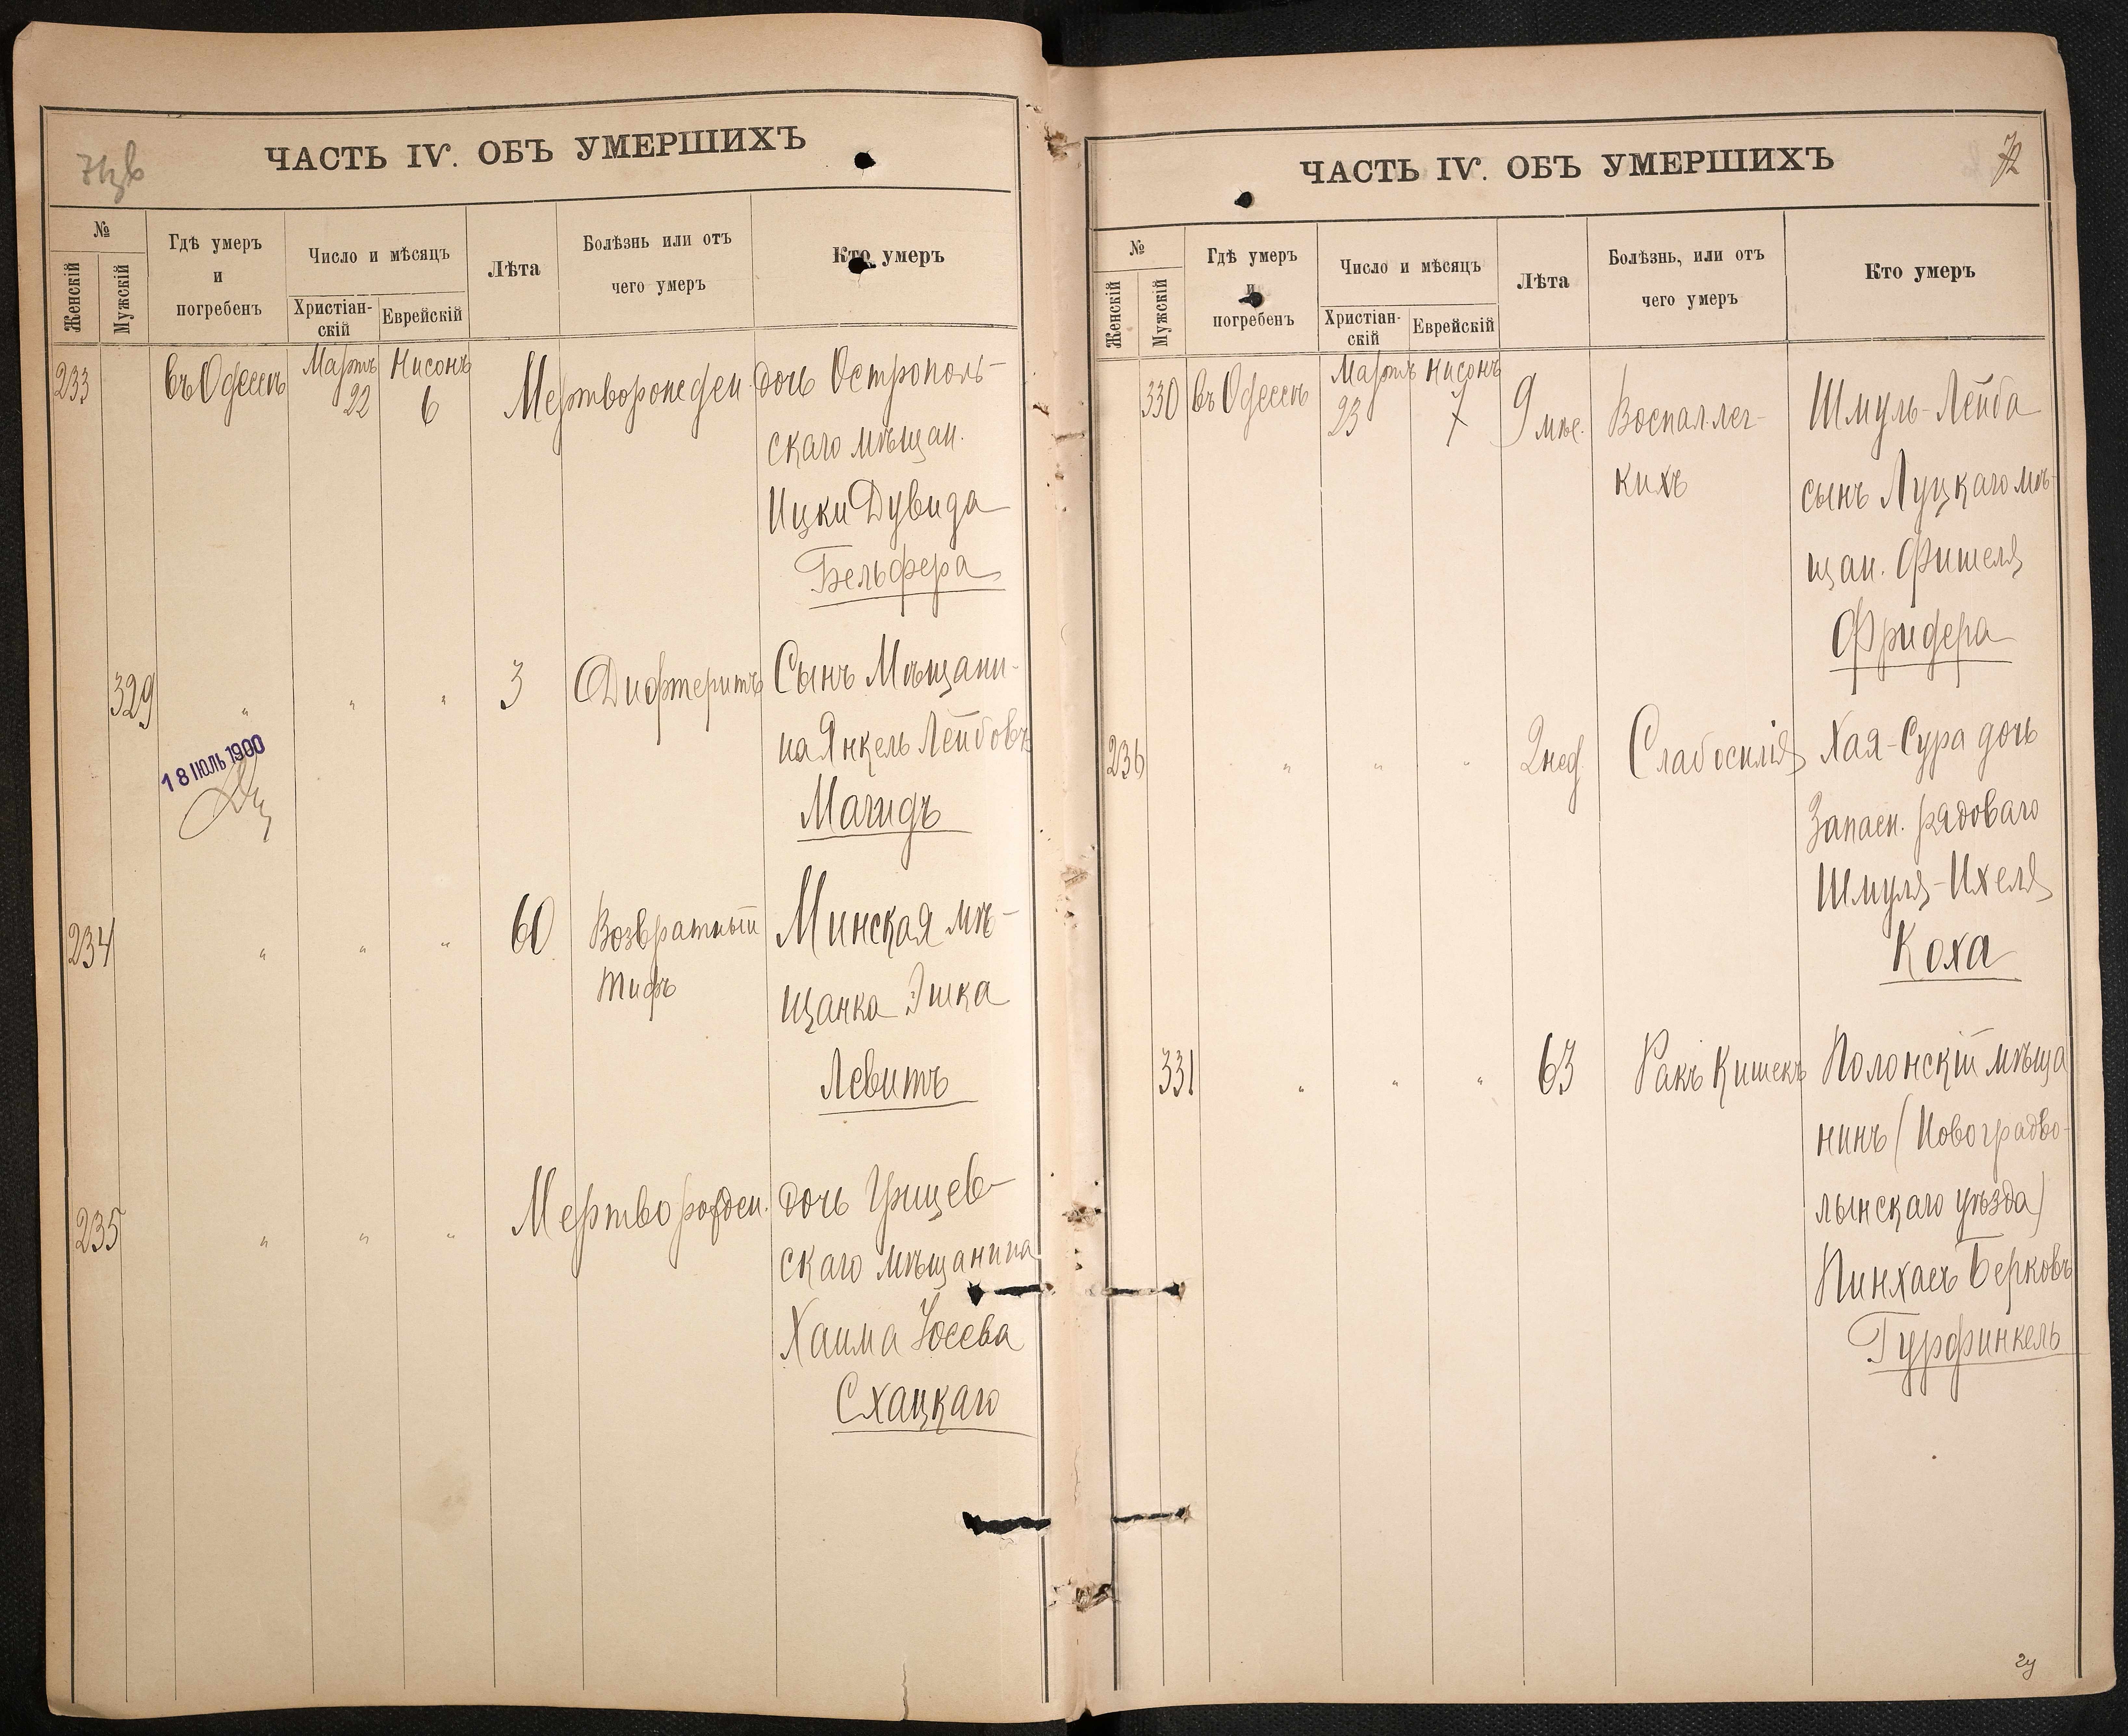 ЧАСТЬ IV. ОБЪ УМЕРШИХЪ
№
Женскій
Мужскій
Гдѣ умеръ
и
погребенъ
Число и мѣсяцъ
Христіан-
скій
Еврейскій
Лѣта
Болѣзнь или отъ
чего умеръ
Кто умеръ
233 въ Одессѣ Мартъ 22 Нисонъ 6 Мертворожден. дочь Острополь-
скаго мѣщан.
Ицки Дувида
Бельфера
329 " " " 3 Дифтеритъ Сынъ Мѣщани-
на Янкель Лейбовъ
Магидъ
18 ІЮЛЬ 1900
234 " " " 60 Возвратный Минская мѣ-
тифъ щанка Эшка
Левитъ
235 " " " Мертворожден. дочь Грицев-
скаго мѣщанина
Хаима Юсева
Схацкаго
ЧАСТЬ IV. ОБЪ УМЕРШИХЪ
72
№
Женскій
Мужскій
Гдѣ умеръ
и
погребенъ
Число и мѣсяцъ
Христіан-
скій
Еврейскій
Лѣта
Болѣзнь, или отъ
чего умеръ
Кто умеръ
330 въ Одессѣ Мартъ 23 Нисонъ 7 9 мѣс. Воспал. лег- Шмуль-Лейба
кихъ сынъ Луцкаго мѣ-
щан. Фишеля
Фридера
236 " " " 2 нед. Слабосилія Хая-Сура дочь
Запасн. рядоваго
Шмуля-Ихеля
Коха
331 " " " 63 Ракъ Кишекъ Полонскій мѣща
нинъ (Новоградво-
лынскаго уѣзда)
Пинхасъ Берковъ
Гурфинкель